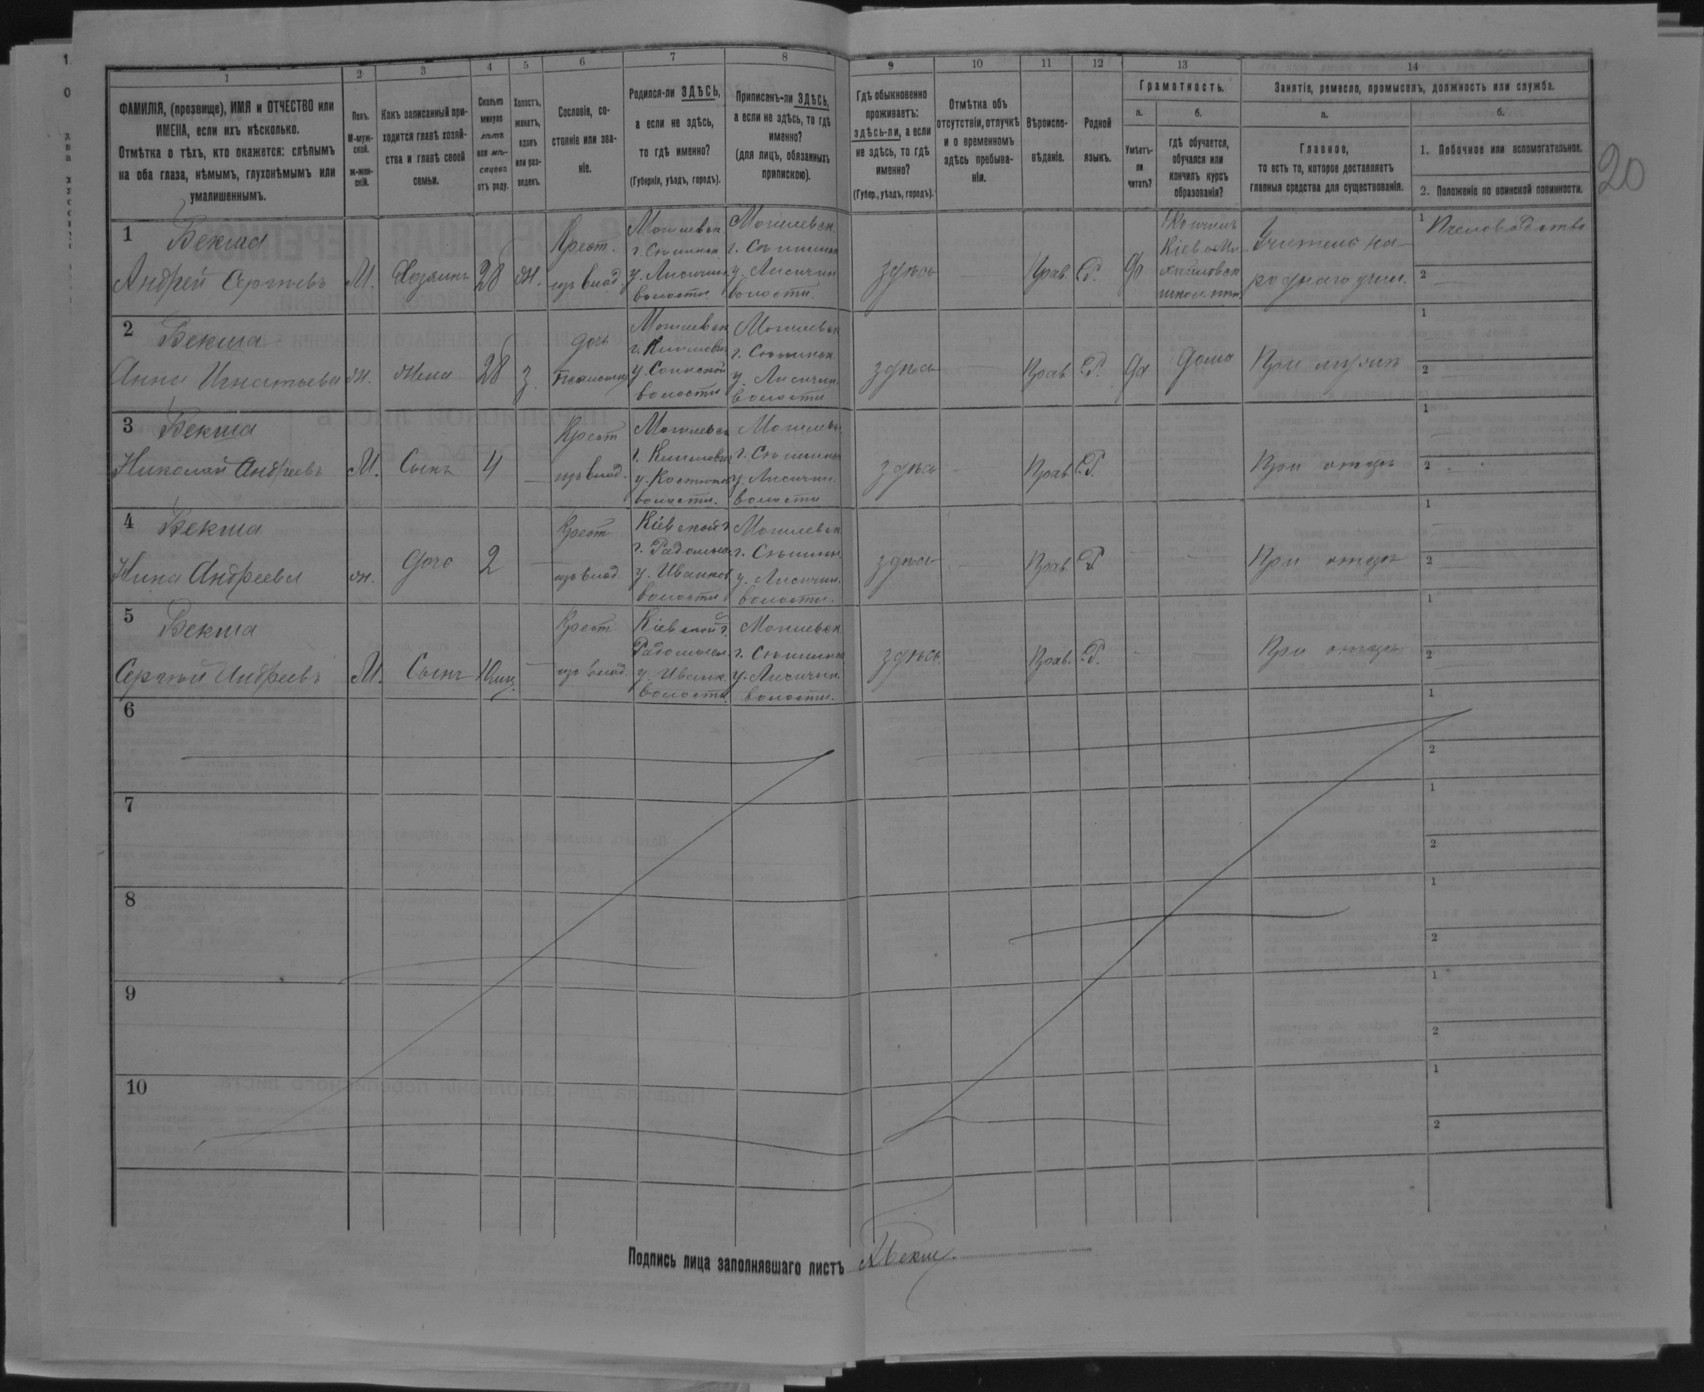 20
1
2
3
4
5
6
7
8
9
10
11
12
13
14
ФАМИЛІЯ, (прозвище), ИМЯ и ОТЧЕСТВО или
ИМЕНА, если ихъ нѣсколько.
Отмѣтка о тѣхъ, кто окажется: слѣпымъ
на оба глаза, нѣмымъ, глухонѣмымъ или
умалишеннымъ.
Полъ.
М-муж-
ской.
ж-жен-
скій.
Какъ записанный при-
ходится главѣ хозяй-
ства и главѣ своей
семьи.
Сколько
минуло
лѣтъ
или мѣ-
сяцевъ
отъ роду.
Холостъ,
женатъ,
вдовъ
или раз-
веденъ.
Сословіе, со-
стояніе или зва-
ніе.
Родился-ли ЗДѢСЬ,
а если не здѣсь,
то гдѣ именно?
(Губернія, уѣздъ, городъ).
Приписанъ-ли ЗДѢСЬ,
а если не здѣсь, то гдѣ
именно?
(для лицъ, обязанныхъ
припискою).
Гдѣ обыкновенно
проживаетъ:
здѣсь-ли, а если
не здѣсь, то гдѣ
именно?
(Губер., уѣздъ, городъ).
Отмѣтка объ
отсутствіи, отлучкѣ
и о временномъ
здѣсь пребыва-
ніи.
Вѣроиспо-
вѣданіе.
Родной
языкъ.
Грамотность.
а.
Умѣетъ-
ли
читать?
б.
гдѣ обучается,
обучался или
кончилъ курсъ
образованія?
Занятіе, ремесло, промыселъ, должность или служба.
а.
Главное,
то есть то, которое доставляетъ
главныя средства для существованія.
б.
1. Побочное или вспомогательное.
2. Положеніе по воинской повинности.
1
Бекша
Андрей Сергѣевъ
М.
Хозяинъ
28
ж.
Крест.
изъ влад.
Могилевск
г. Сѣннинск
у. Лисичин
волости
Могилевск
г. Сѣннинск
у. Лисичин
волости
здѣсь
Прав
Р.
да
Кончилъ
Учитель на-
роднаго учил.
1 Пчеловодство
2
2
Бекша
Анна Игнатьева
ж.
жена
28
з.
дочь
Могилевск
г. Климович
у.
волости
Могилевск
г. Сѣннинск
у. Лисичин.
волости
здѣсь
Прав
Р.
да
дома
При мужѣ
1
2
3
Бекша
Николай Андреевъ
М.
Сынъ
4
Крест
изъ влад.
Могилевск
г. Климович
у.
волости.
Могилевск
г. Сѣннинск
у. Лисичин.
волости
здѣсь
Прав
Р
При отцѣ
1
2
4
Бекша
Нина Андреева
ж.
дочь
2
Крест
изъ влад
Кіевской
г. Радомысл
у. Иванков
волости
Могилевск
г. Сѣннинск
у. Лисичин.
волости.
здѣсь
Прав
Р
При отцѣ
1
2
5
Бекша
Сергѣй Андреевъ
М.
Сынъ
Крест
изъ влад.
Кіевской г.
Радомысл
у. Иванк.
волости
Могилевск
г. Сѣннинск
у. Лисичин.
волости.
здѣсь
Прав.
Р.
При отцѣ
1
2
6
1
2
7
1
2
8
1
2
9
1
2
10
1
2
Подпись лица заполнявшаго листъ